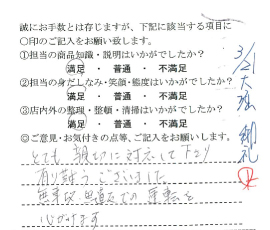 誠にお手数とは存じますが、下記に該当する項目に
○印のご記入をお願い致します。
①担当の商品知識・説明はいかがでしたか？
満足 ・ 普通 ・ 不満足
②担当の身だしなみ・笑顔・態度はいかがでしたか？
満足 ・ 普通 ・ 不満足
③店内外の整理・整頓・清掃はいかがでしたか？
満足 ・ 普通 ・ 不満足
◎ご意見・お気付きの点等、ご記入をお願いします。
とても 親切に対応して下さり
有り難うございました
無事故 での 運転を
心がけます
3/21 御礼